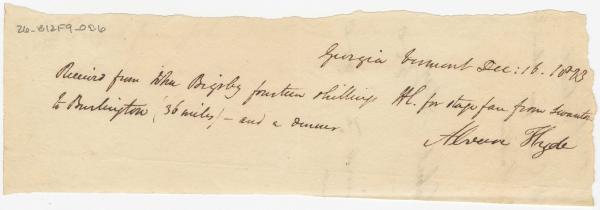 26-B12F9-036
Georgia Vermont Dec: 16. 1823
Received from John Bigsby fourteen shillings H.C. for stage fare from Swanton
to Burlington (36 miles) – and a dinner
Alvern Hyde